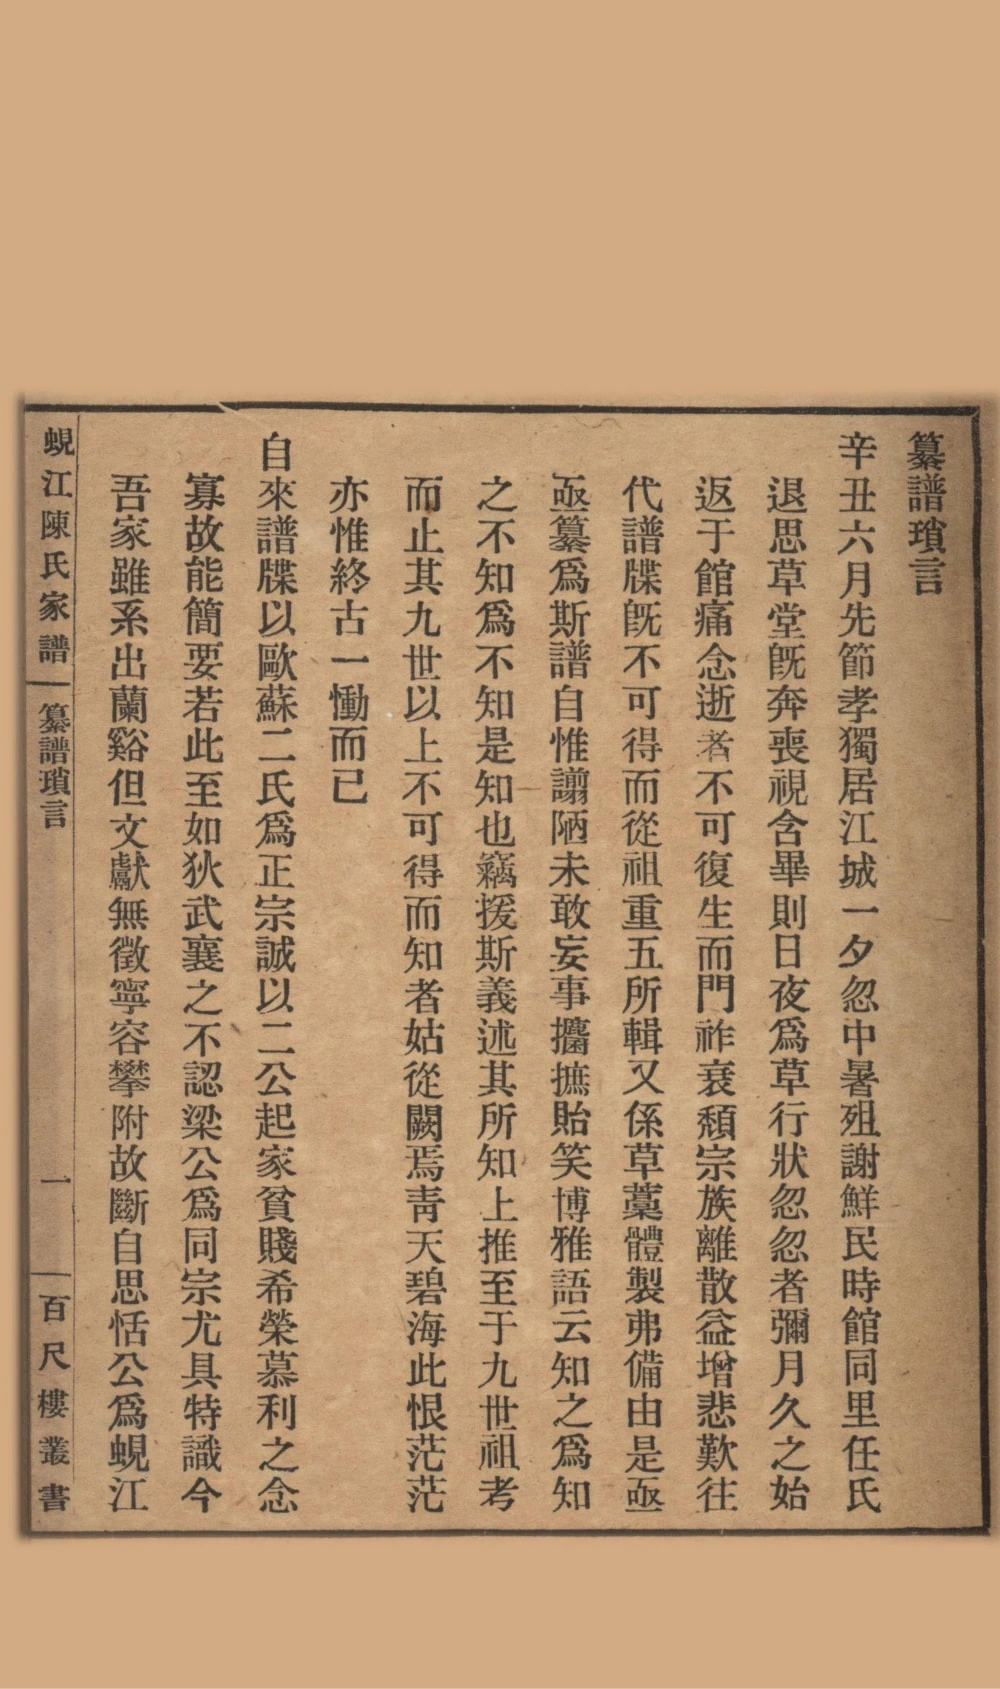 纂譜瑣言
辛丑六月先節孝獨居江城一夕忽中暑殂謝鮮民時館同里任氏
退思草堂旣奔喪視含畢則日夜爲草行狀忽忽者彌月久之始
返于館痛念逝者不可復生而門祚衰頹宗族離散益增悲歎往
代譜牒旣不可得而從祖重五所輯又係草藁體製弗備由是亟
亟纂爲斯譜自惟譾陋未敢妄事攟摭貽笑博雅語云知之爲知
之不知爲不知是知也竊援斯義述其所知上推至于九世祖考
而止其九世以上不可得而知者姑從闕焉靑天碧海此恨茫茫
亦惟終古一慟而已
自來譜牒以歐蘇二氏爲正宗誠以二公起家貧賤希榮慕利之念
寡故能簡要若此至如狄武襄之不認梁公爲同宗尤具特識今
吾家雖系出蘭谿但文獻無徵寧容攀附故斷自思恬公爲蜆江
蜆江陳氏家譜 纂譜瑣言 一 百尺樓叢書